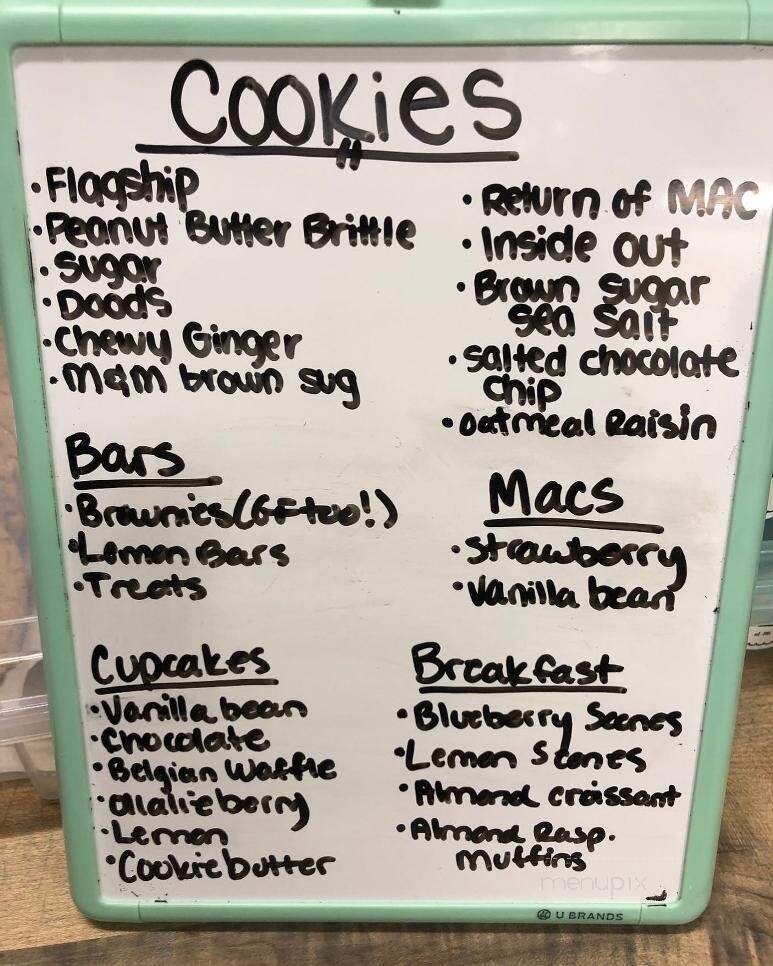 Cookies
• Flagship
• Peanut Butter Brittle
• Sugar
• Doods
• Chewy Ginger
• m&m brown sug
• Return of MAC
• Inside out
• Brown sugar
sea salt
• salted chocolate
chip
• oatmeal Raisin
Bars
• Brownies (GF too!)
• Lemon Bars
• Treats
Macs
• strawberry
• Vanilla bean
Cupcakes
• Vanilla bean
• Chocolate
• Belgian Waffle
• olalieberry
• Lemon
• Cookie butter
Breakfast
• Blueberry Scones
• Lemon Scones
• Almond croissant
• Almond Rasp.
muffins
menupix
U BRANDS